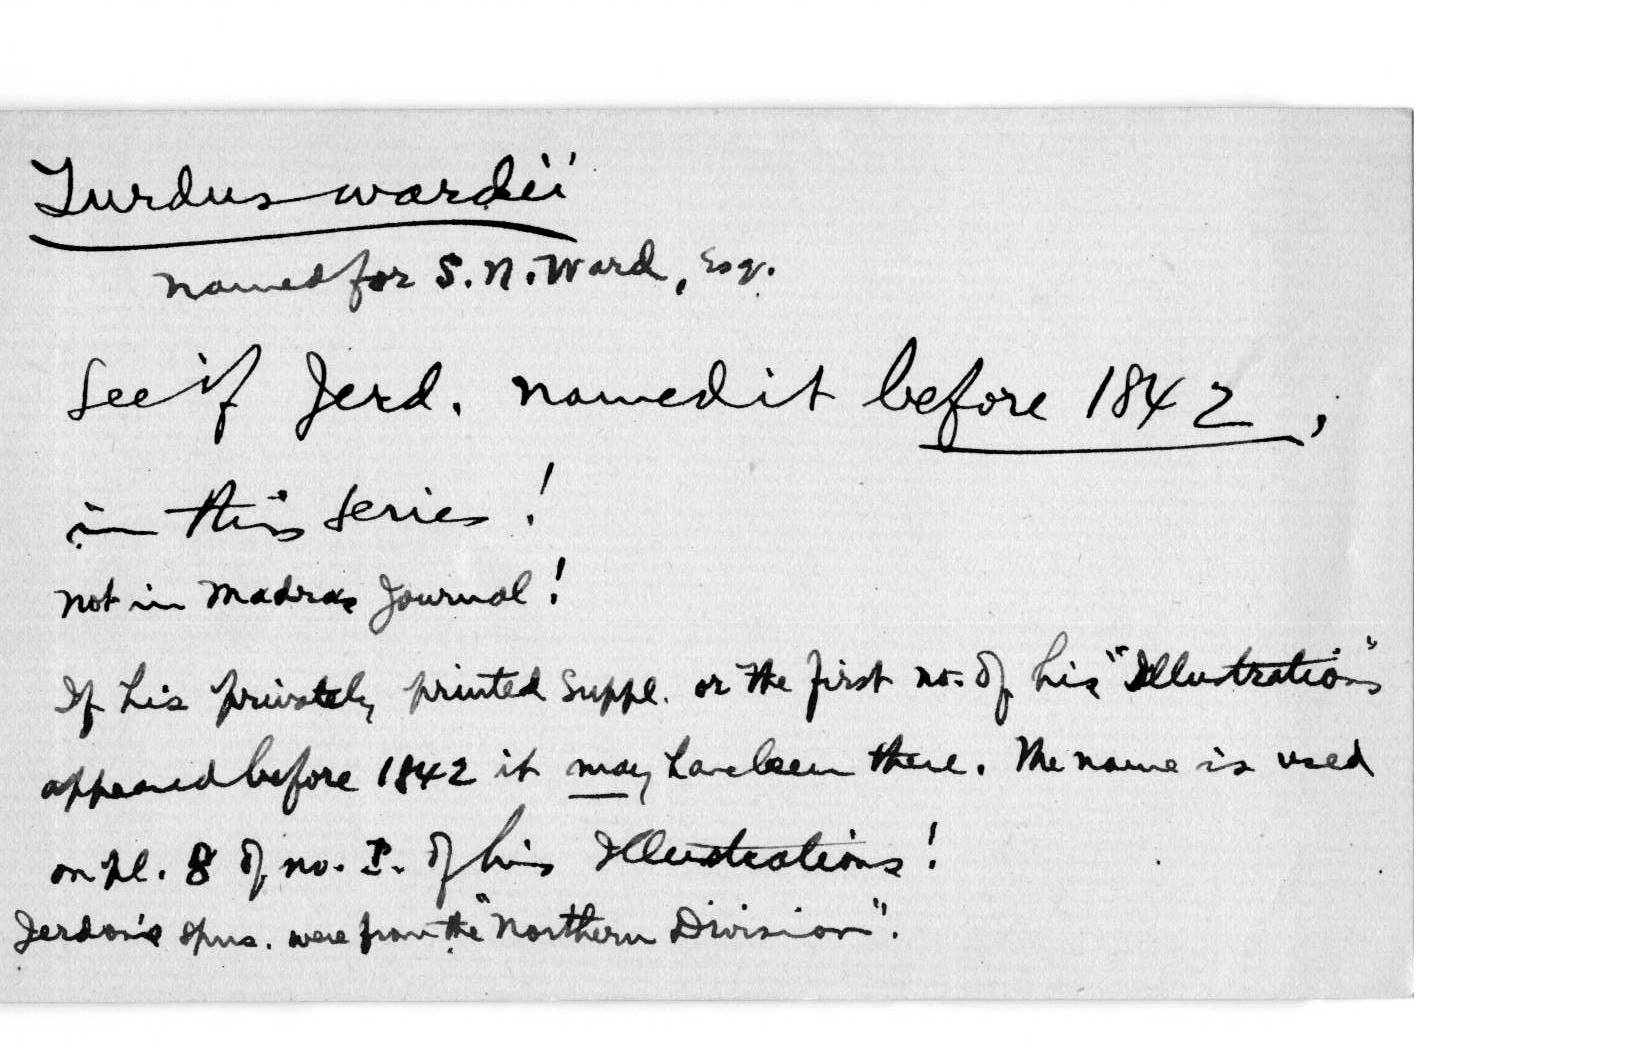 Turdus wardii
named for S. N. Ward, Esq.
See if Jerd. named it before 1842,
in this series!
not in Madras Journal!
If his privately printed Suppl. or the first no. of his "Illustrations"
appeared before 1842 it may have been there. The name is used
on pl. 8 of no. I. of his Illustrations!
Jerdon's spns. were from the "Northern Division".